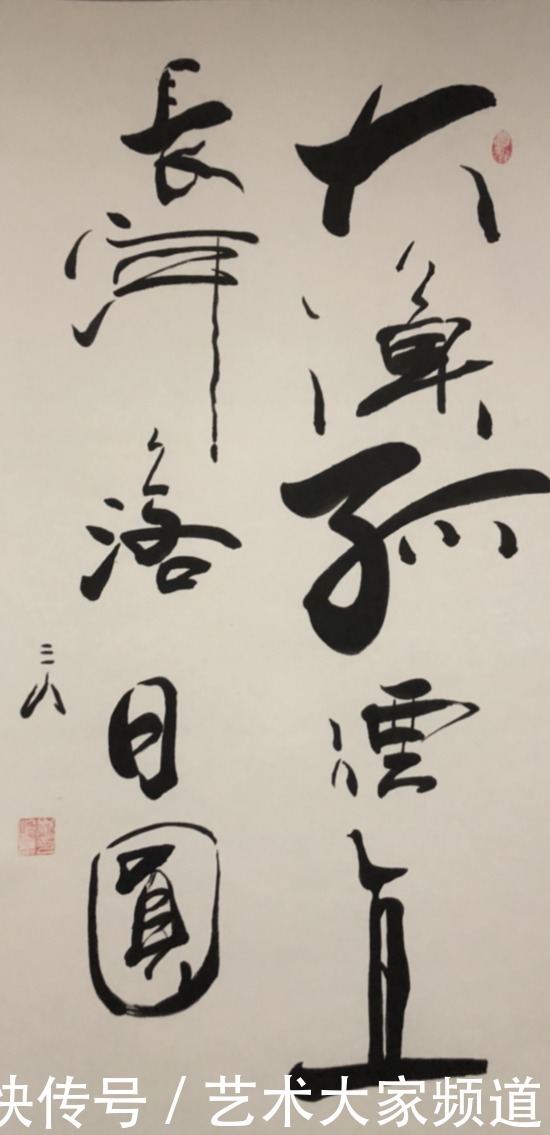 大漠孤煙直
長河落日圓
三山
快传号 / 艺术大家频道